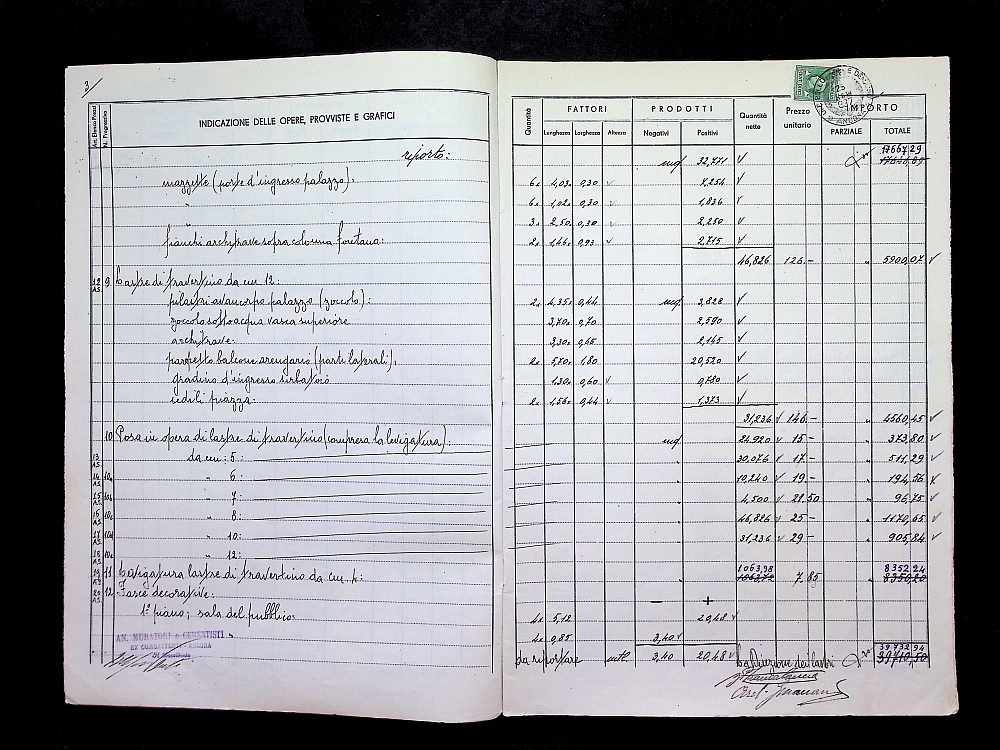 3
Art. Elenco Prezzi
N. Progressivo
INDICAZIONE DELLE OPERE, PROVVISTE E GRAFICI
Quantità
FATTORI
Lunghezza Larghezza Altezza
PRODOTTI
Negativi Positivi
Quantità nette
Prezzo unitario
IMPORTO
PARZIALE TOTALE
17667,29
riporto: mq 32,771 17641,69
mazzette (porte d'ingresso palazzo): 6x 4,03x 0,30 7,254
" 6x 1,02x 0,30 1,836
" 3x 2,50x 0,30 2,250
fianchi architrave sopra colonna fontana: 2x 1,46x 0,93 2,715
46,826 126.- " 5900,07
12 A.S. 9 Lastre di travertino da cm 12:
pilastri avancorpo palazzo (zoccolo): 2x 4,35x 0,44 mq 3,828
zoccolo sottoacqua vasca superiore 3,70x 0,70 2,590
architrave: 3,30x 0,65 2,145
parapetto balcone arengario (parti laterali): 2x 5,70x 1,80 20,520
gradino d'ingresso serbatoio 1,30x 0,60 0,780
sedili piazza: 2x 1,56x 0,44 1,373
31,236 146.- " 4560,45
10 Posa in opera di lastre di travertino (compresa la levigatura): mq 24,920 15.- " 373,80
13 A.S. da cm: 5: " 30,076 17.- " 511,29
14 A.S. 10a " 6: " 10,240 19.- " 194,56
15 A.S. 10b " 7: " 4,500 21.50 " 96,75
16 A.S. 10c " 8: " 46,826 25.- " 1170,65
17 A.S. 10d " 10: " 31,236 29.- " 905,84
18 A.S. 10e " 12:
1063,98 8352,24
19 A.S. 11 Levigatura lastre di travertino da cm. 4: " 1063,72 7.85 " 8350,20
20 A.S. 12 Fasce decorative: - +
1° piano; sala del pubblico: 4x 5,12 20,48
" 4x 0,85 3,40
39732,94
da riportare mtl. 3,40 20,48 39710,50
AN. MURATORI e CEMENTISTI
EX COMBATTENTI - ANCONA
Il Presidente
La Direzione dei lavori